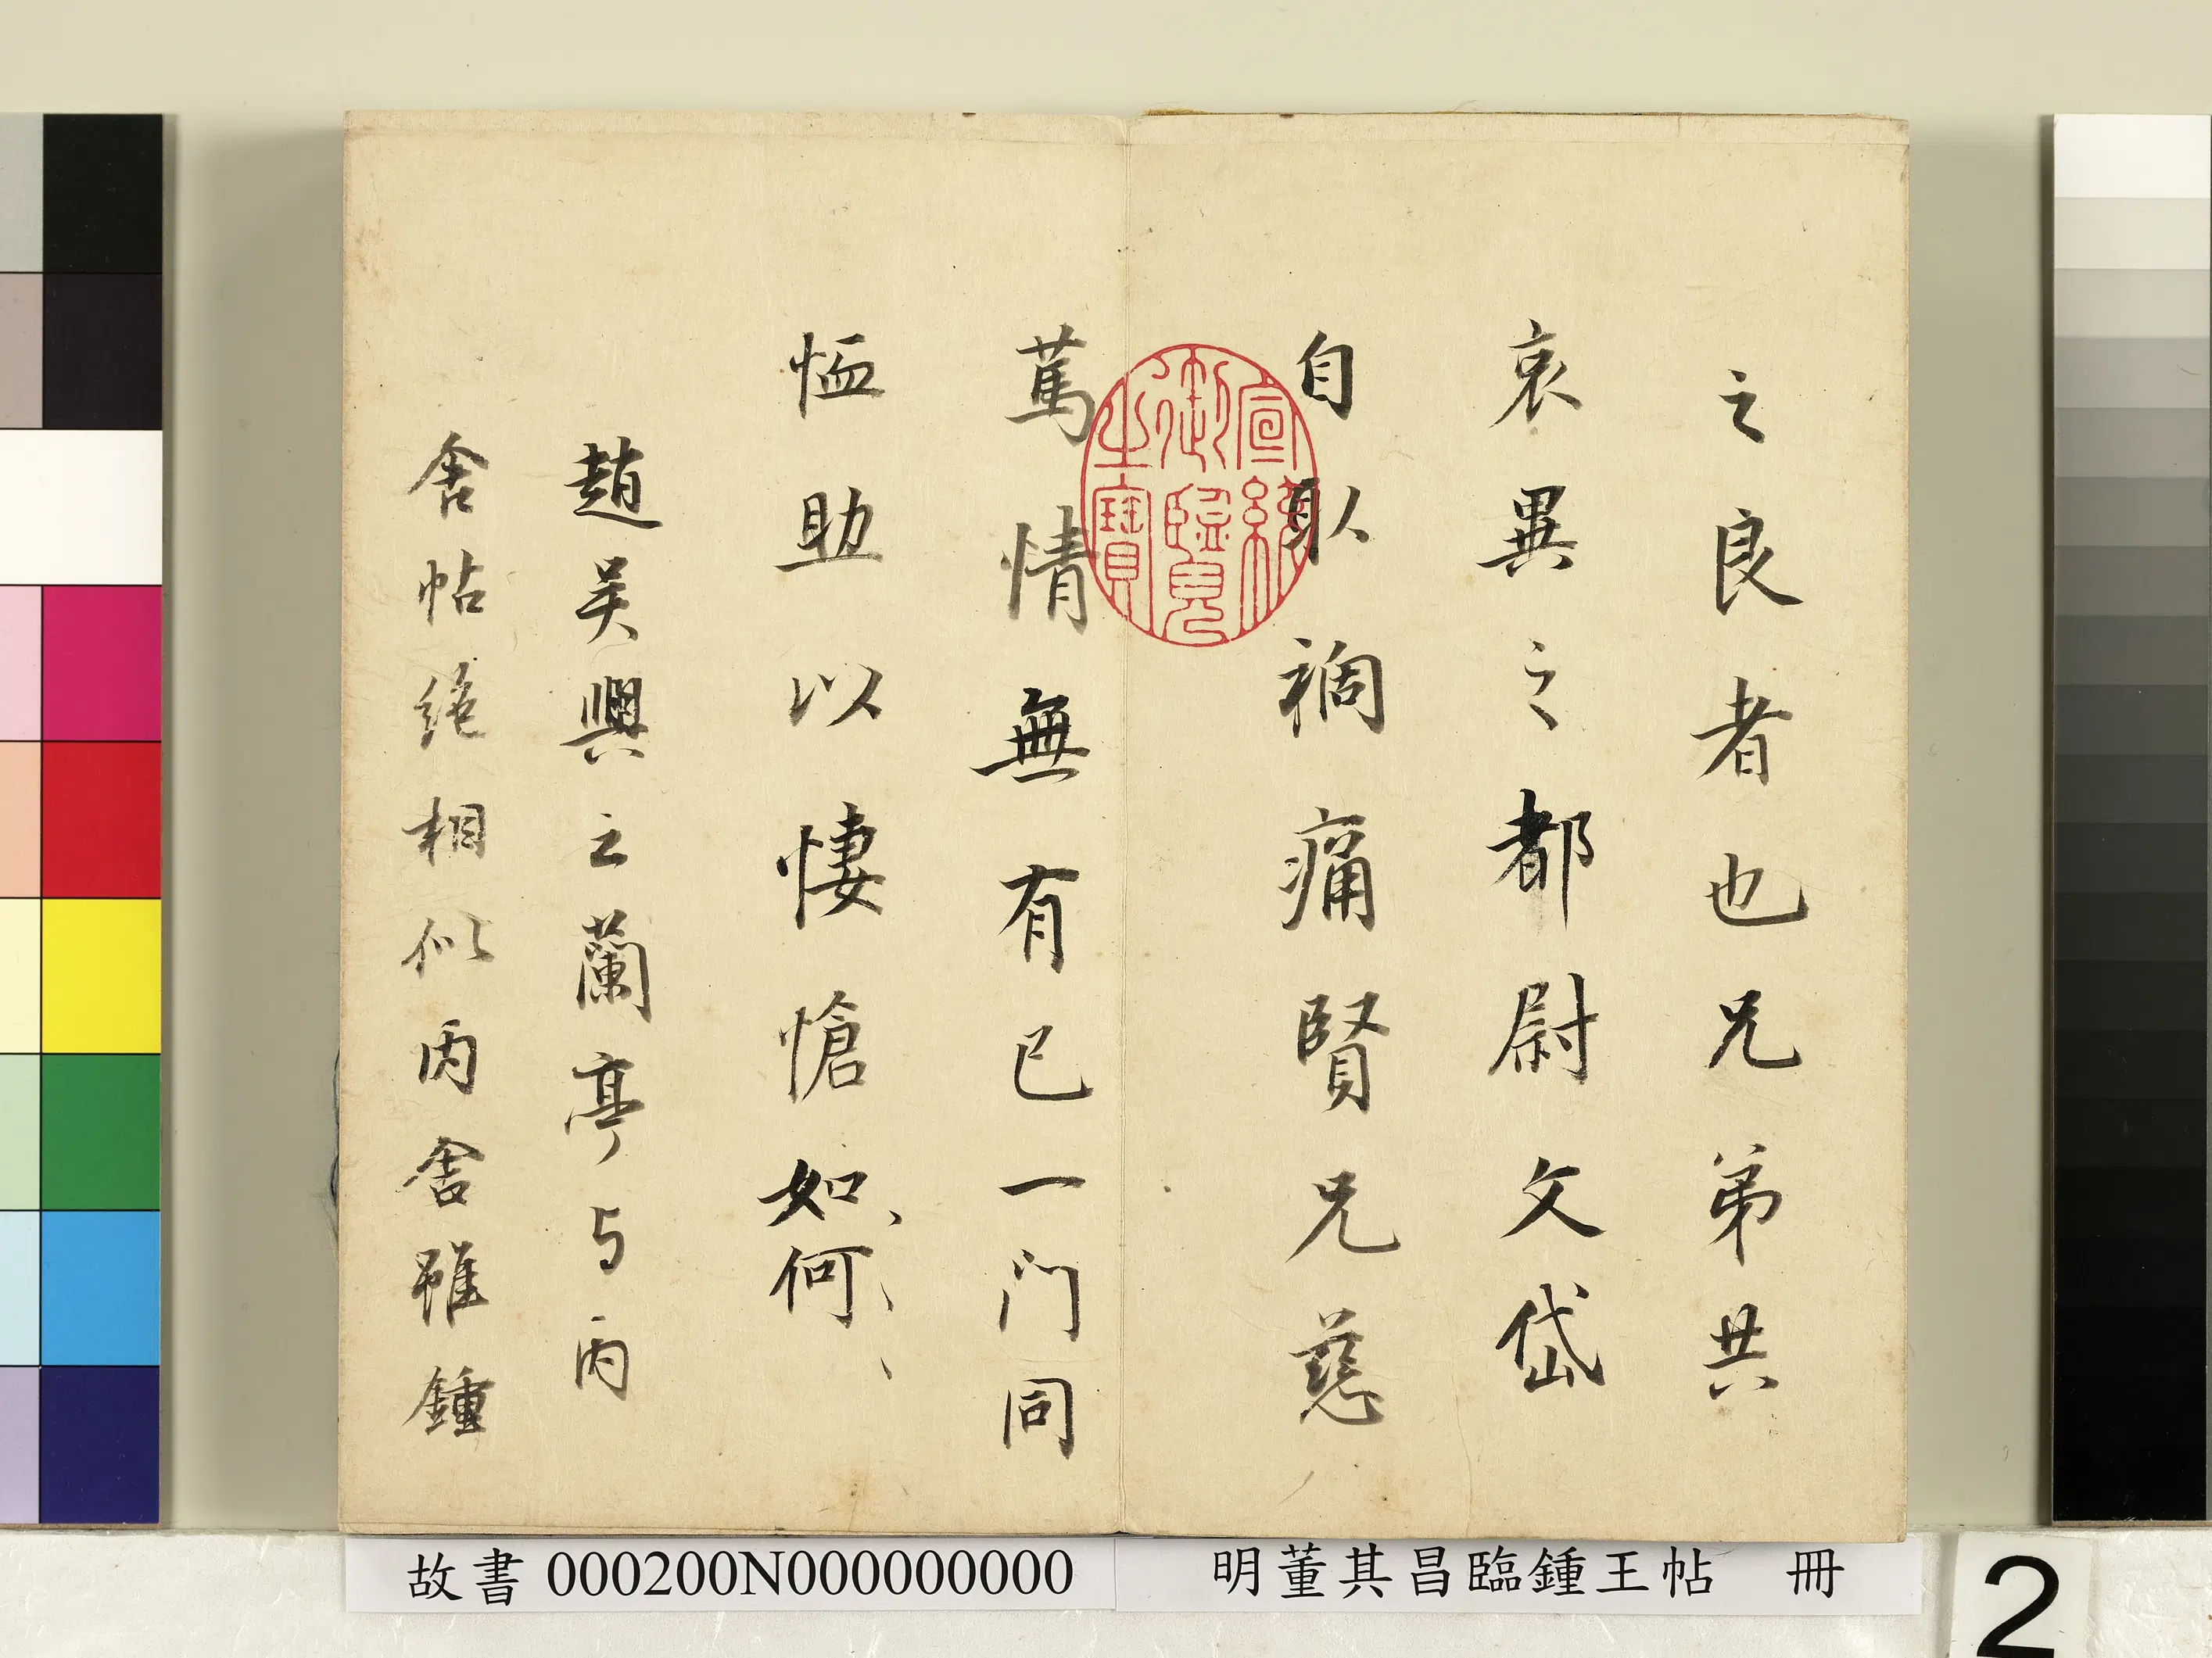 之良者也兄弟共
哀異之都尉文岱
自取禍痛賢兄慈
篤情無有已一门同
恤助以悽愴如、何、、
趙吴興之蘭亭与丙
舍帖絶相似丙舍雖鍾
宣統御覽之寶
故書 000200N000000000
明董其昌臨鍾王帖 冊
2